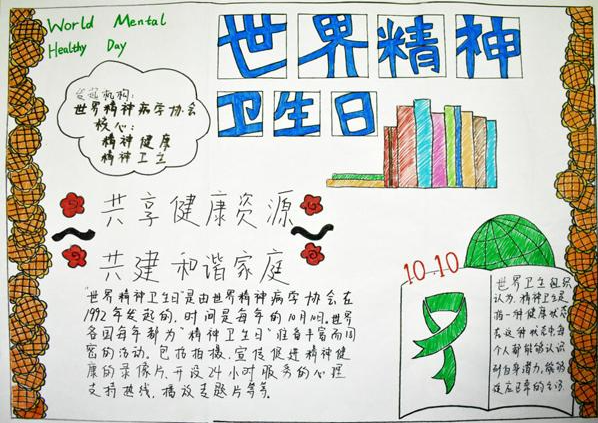 World Mental
Healthy Day
世界精神
卫生日
发起机构:
世界精神病学协会
核心:
精神健康
精神卫生
共享健康资源
共建和谐家庭
"世界精神卫生日"是由世界精神病学协会在
1992年发起的,时间是每年的10月10日。世界
各国每年都为"精神卫生日"准备丰富而周
密的活动。包括拍摄、宣传促进精神健
康的录像片、开设24小时服务的心理
支持热线、播放专题片等等。
10.10
世界卫生组织
认为,精神卫生是
指一种健康状态
在这种状态中每
个人都能够认识
到自身潜力,能够
适应正常的生活